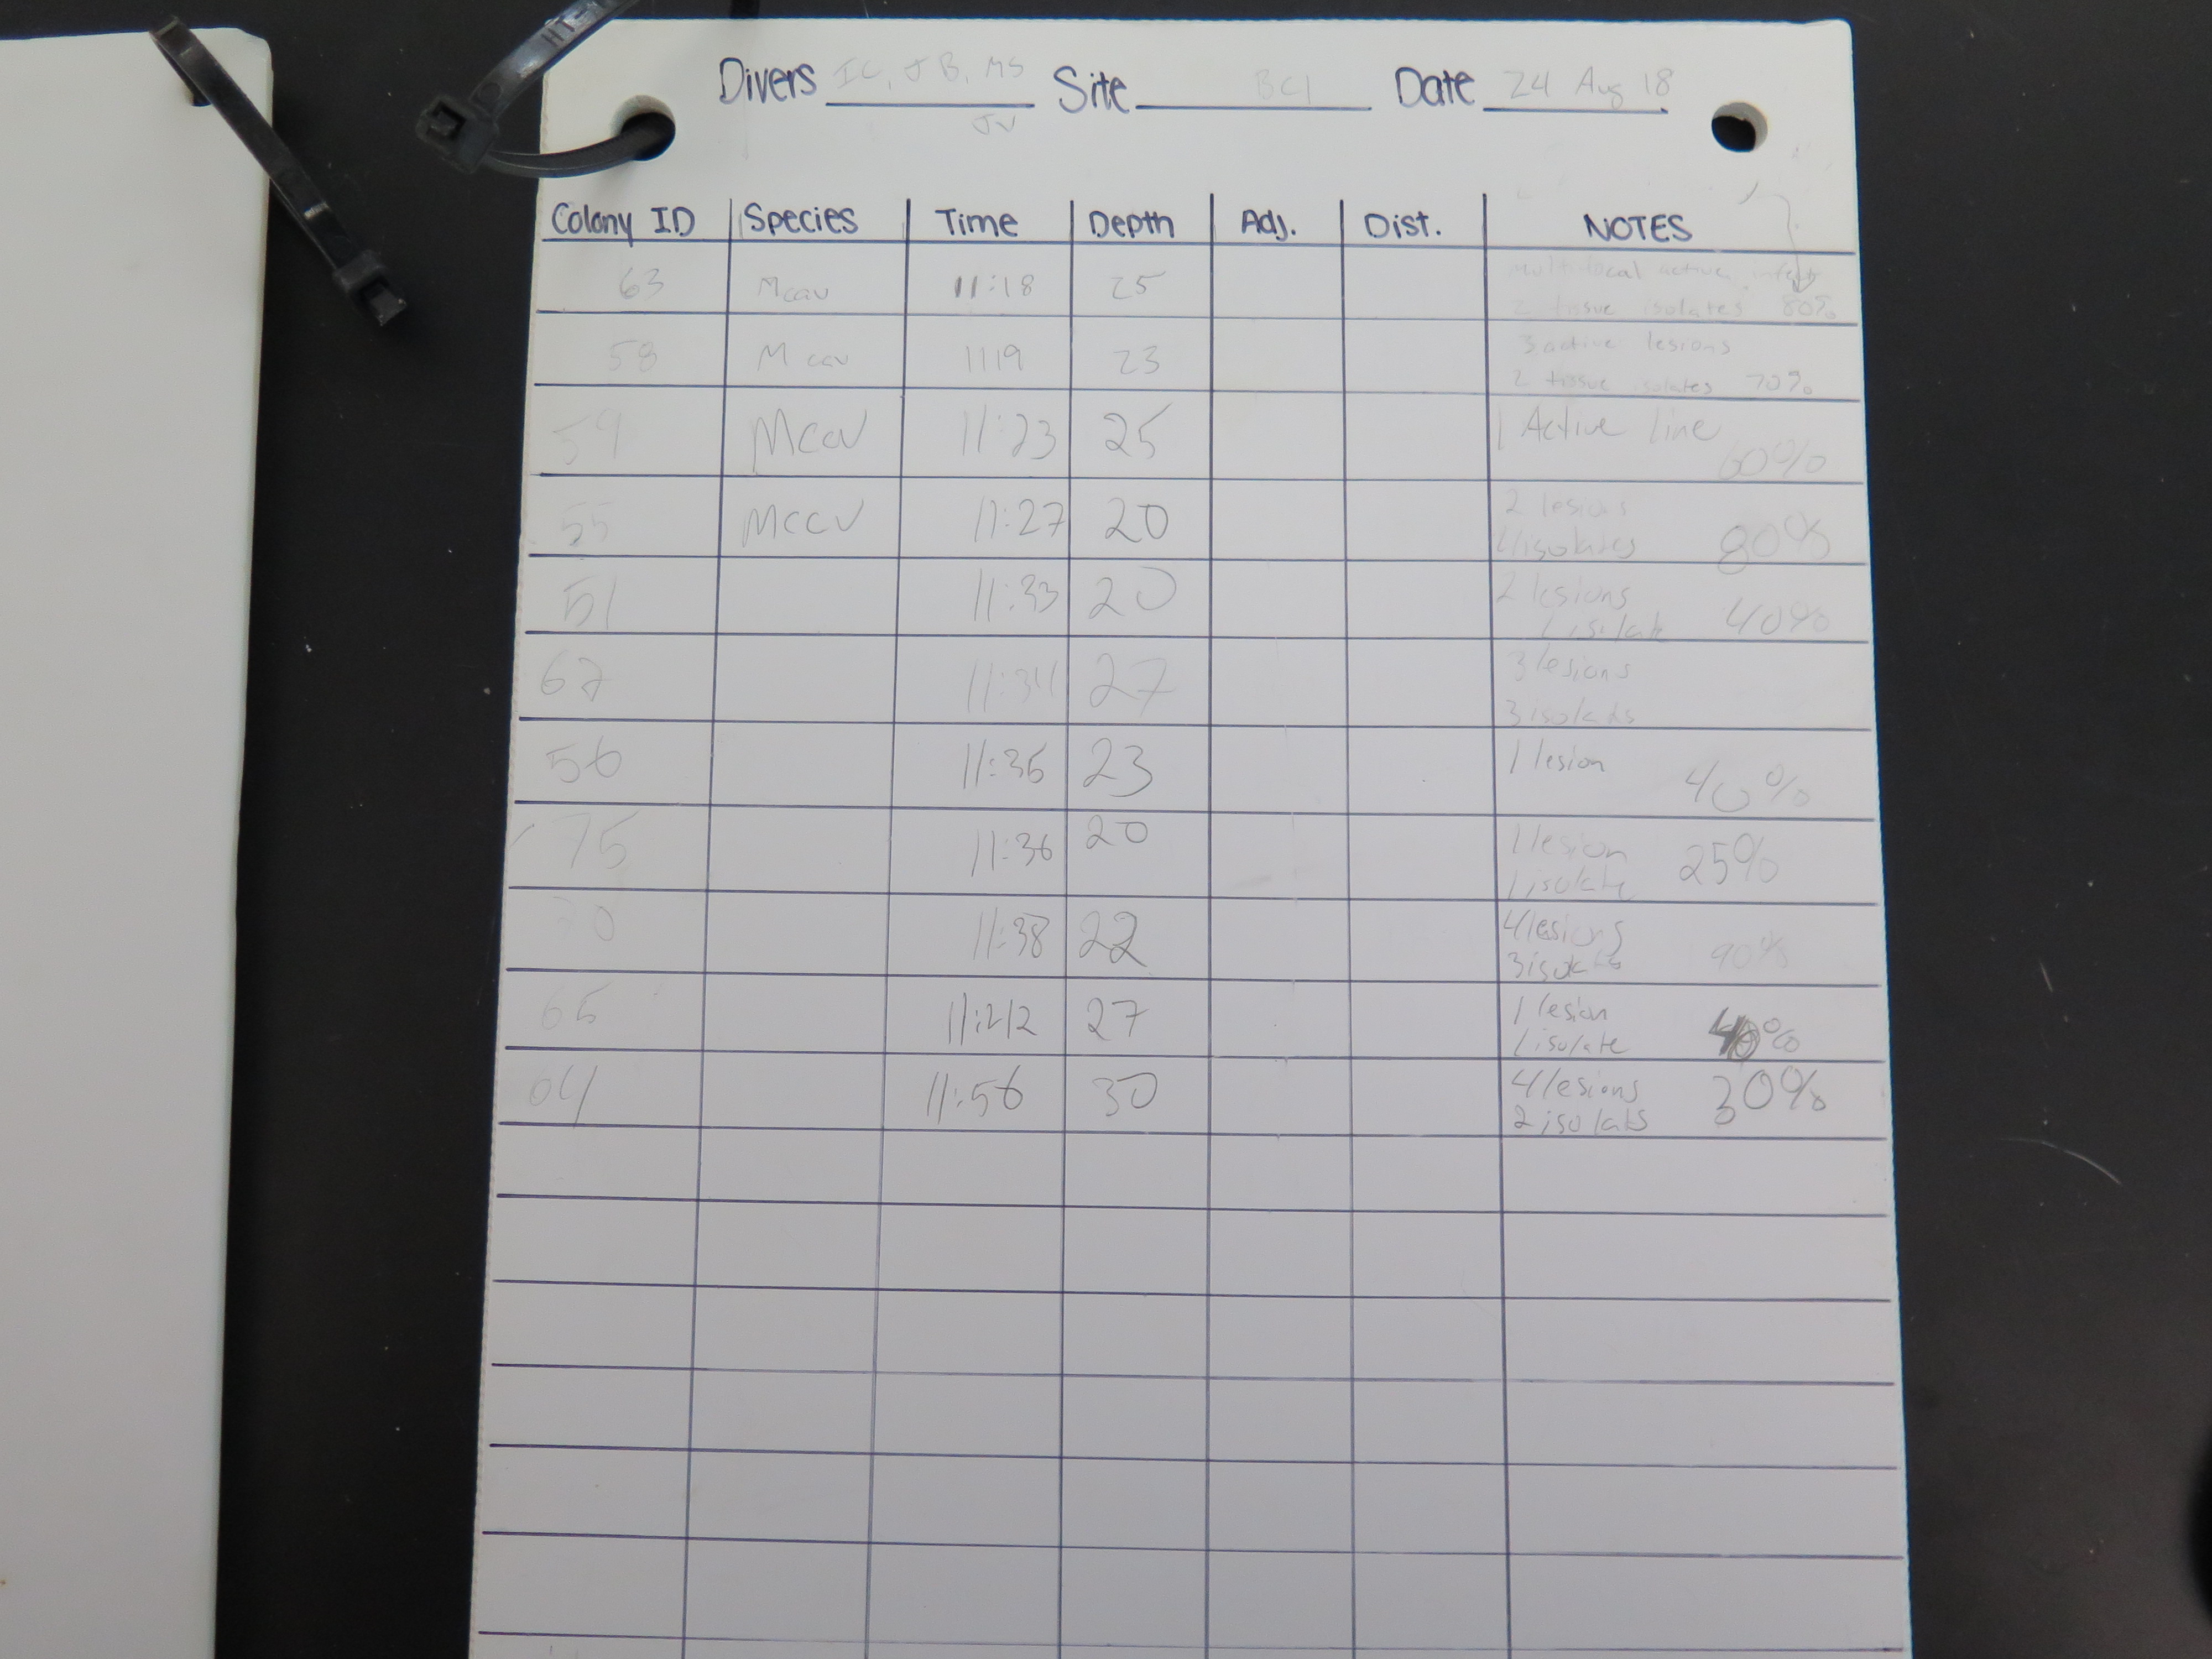 Divers IC, JB, MS Site BC1 Date 24 Aug 18
JV
Colony ID Species Time Depth Adj. Dist. NOTES
63 Mcav 11:18 25 multifocal active
2 tissue isolates 80%
58 Mcav 1119 23 3 active lesions
2 tissue isolates 70%
59 Mcav 11:23 25 1 Active line
60%
55 Mcav 11:27 20 2 lesions
4 isolates 80%
51 11:33 20 2 lesions
1 isilate 40%
67 11:34 27 3 lesions
3 isolats
56 11:36 23 1 lesion
40%
75 11:36 20 1 lesion 25%
1 isolate
70 11:38 22 4 lesions
3 isolats 90%
65 11:42 27 1 lesion
1 isolate 40%
11:56 30 4 lesions 30%
2 isolats